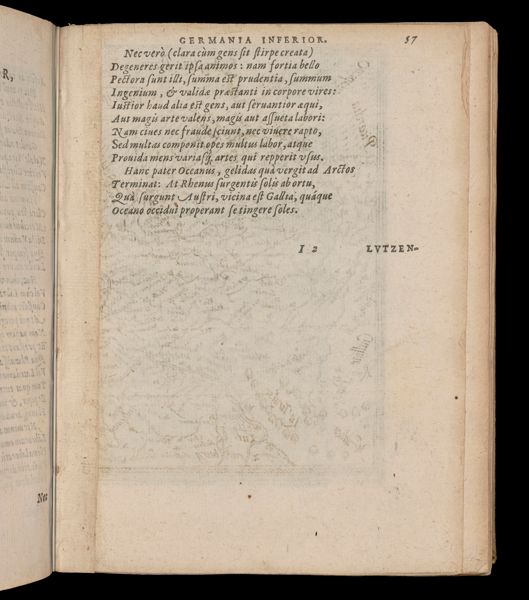 GERMANIA INFERIOR. 57
Nec verò (clara cùm gens sit stirpe creata)
Degeneres gerit ipsa animos: nam fortia bello
Pectora sunt illi, summa est prudentia, summum
Ingenium, & validæ præstanti in corpore vires:
Iustior haud alia est gens, aut servantior æqui,
Aut magis arte valens, magis aut assueta labori:
Nam cives nec fraude sciunt, nec vivere rapto,
Sed multas componit opes multus labor, atque
Provida mens variasq, artes qui repperit usus.
Hanc pater Oceanus, gelidas quà vergit ad Arctos
Terminat: At Rhenus surgentis solis ab ortu,
Quà surgunt Austri, vicina est Gallia, quáque
Oceano occidui properant se tingere soles.
I 2 LVTZEN-
OR,
Nec